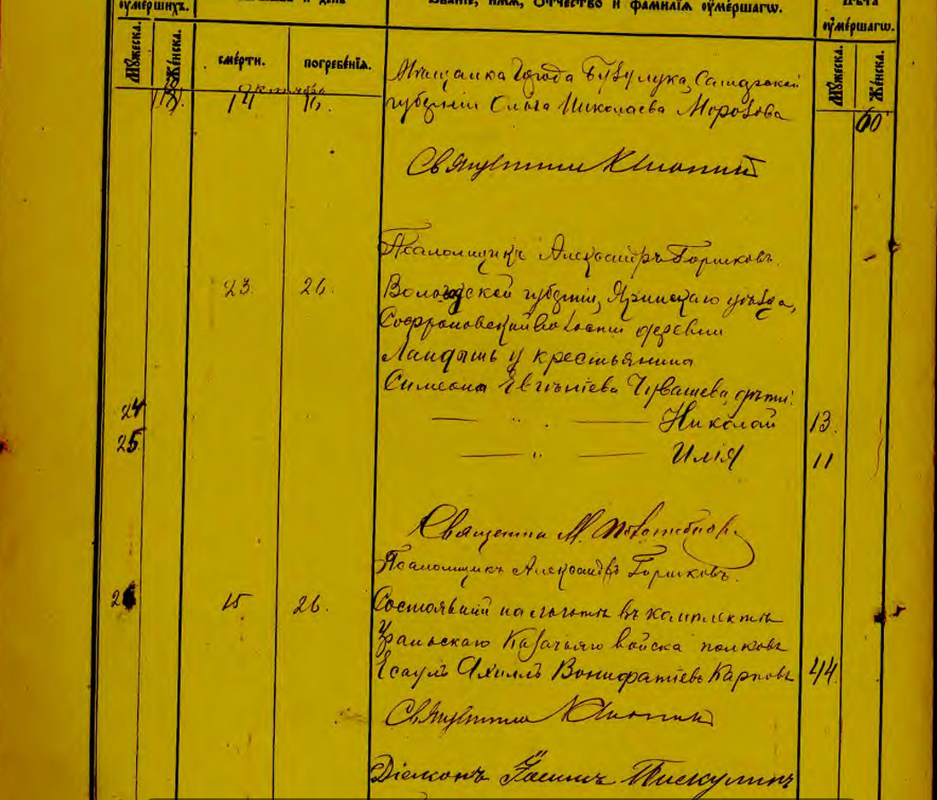 оумершихъ.
Званіе, имя, отчество и фамилія оумершагѡ.
Лѣта
оумершагѡ.
Мужеска.
Женска.
смерти.
погребенія.
Мужеска.
Женска.
октябрь
Мѣщанка города Бузулука, Самарской
14 16. губерніи Ольга Николаева Морозова 60
Священникъ
Псаломщикъ Александръ Горшковъ.
23. 26. Вологодской губерніи, Яринскаго уѣзда,
Софроновской волости деревни
Ландышъ у крестьянина
Симеона Евгеніева Чувашева дѣти:
24 — " — Николай 13.
25. — " — Илія 11
Священникъ М.
Псаломщикъ Александръ Горшковъ.
26 15 26. Состоявшій на льготѣ въ комплектѣ
Уральскаго Казачьяго войска полковъ
Есаулъ Ахиллъ Вонифатіевъ Карповъ 44
Священникъ
Діаконъ Пискулинъ